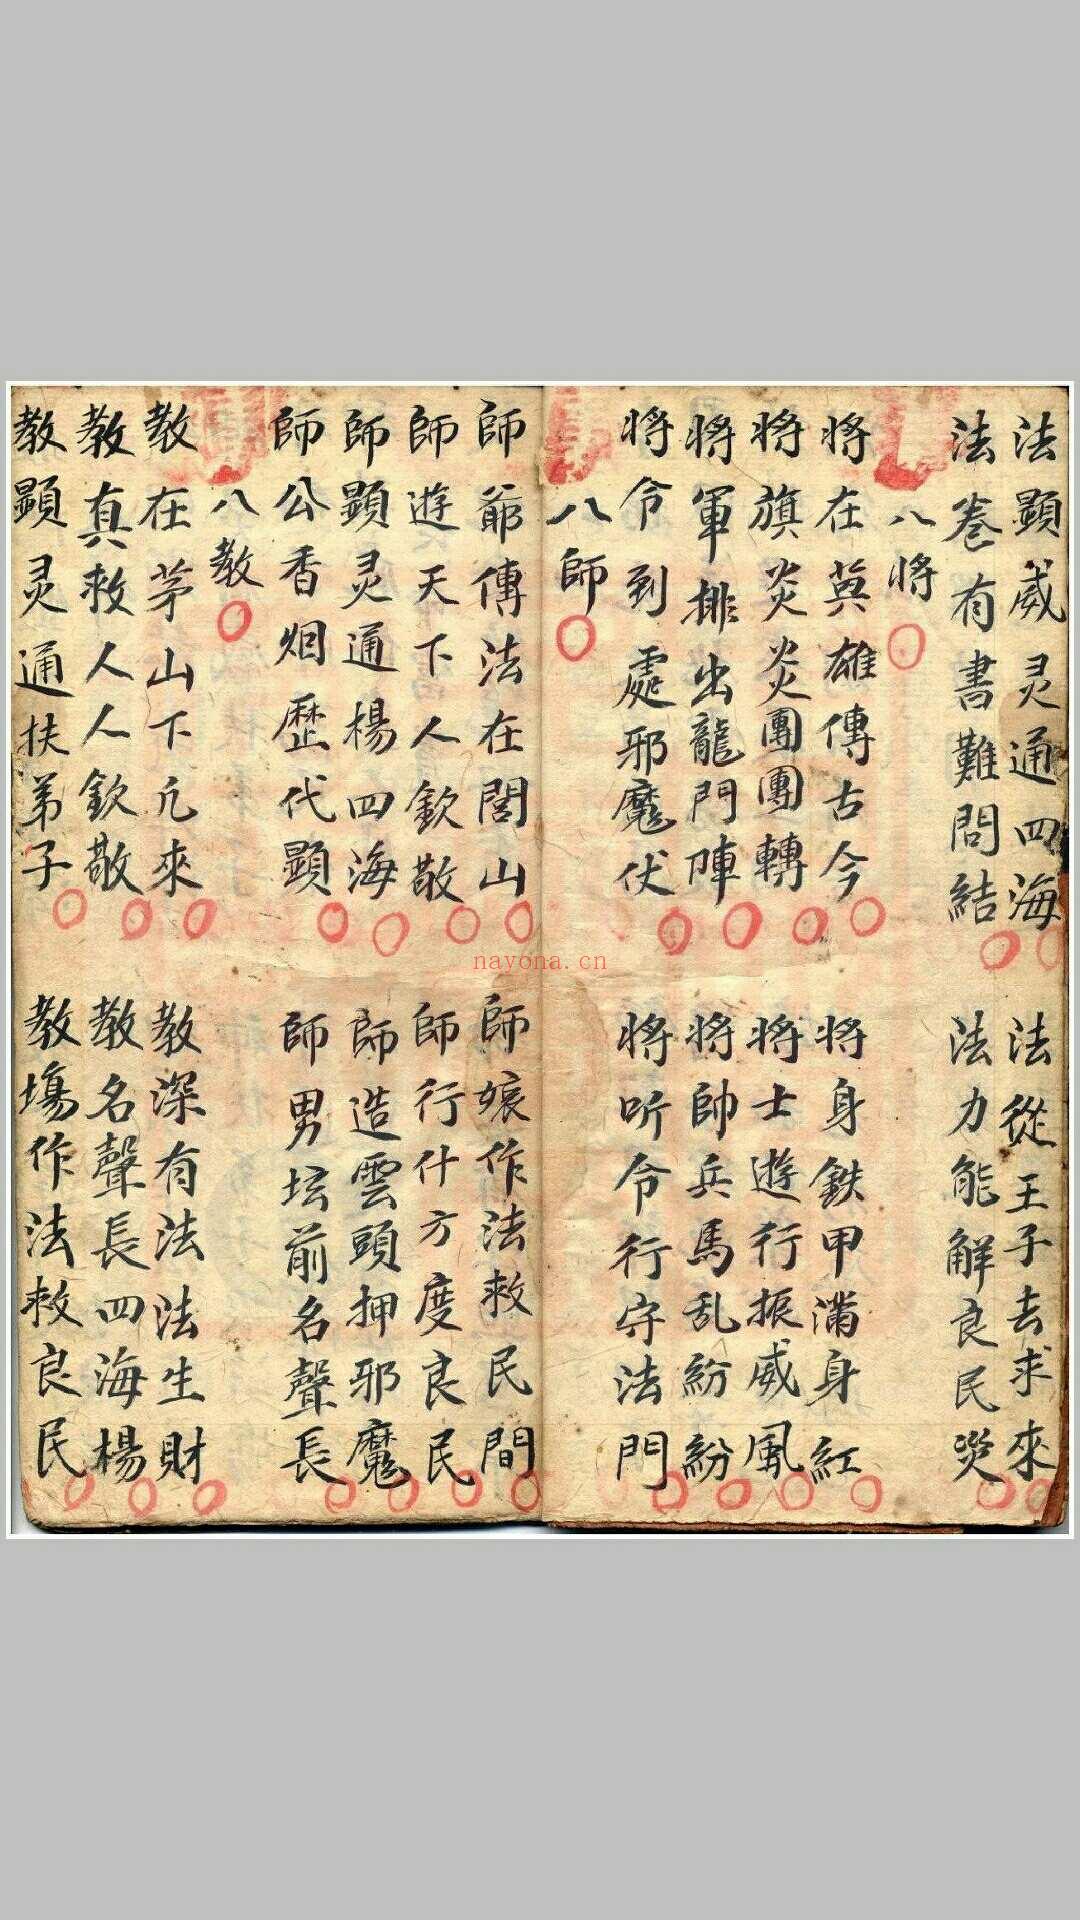 法顕威灵通四海
法從王子去求來
法卷有書難問結
法力能解良民災
八將
將在英雄傳古今
將身鉄甲滿身紅
將旗炎炎團團轉
將士遊行振威風
將軍排出龍門陣
將帥兵馬乱紛紛
將令到處邪魔伏
將听令行守法門
八師
師爺傳法在閭山
師娘作法救民間
師遊天下人欽敬
師行什方度良民
師顕灵通楊四海
師造雲頭押邪魔
師公香烟歷代顕
師男坛前名聲長
八教
教在茅山下元來
教深有法法生財
教真救人人欽敬
教名聲長四海楊
教顕灵通扶弟子
教塲作法救良民
nayona.cn